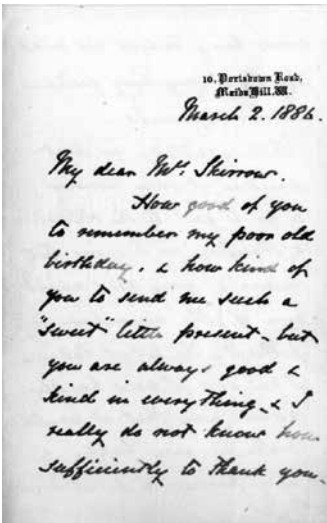 10, Portsdown Road,
Maida Hill. W.
March 2. 1886.
My dear Mrs. Skirrow.
How good of you
to remember my poor old
birthday. & how kind of
you to send me such a
"sweet" little present - but
you are always good &
kind in everything, & I
really do not know how
sufficiently to thank you -